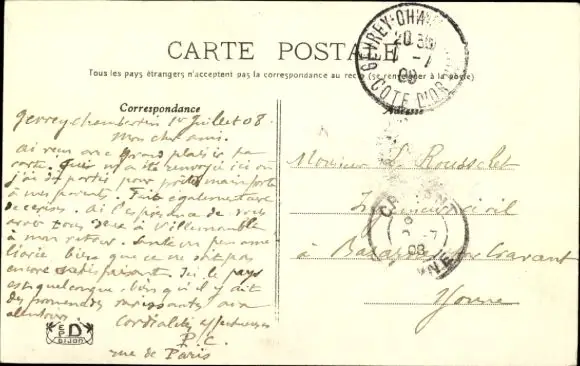 CARTE POSTALE
Tous les pays étrangers n'acceptent pas la correspondance au recto (se renseigner à la poste)
Correspondance
Adresse
GEVREY-CHA
20 35
1 -7
08
COTE D'OR
Gevrey Chambertin 1er Juillet 08.
Mon cher ami.
Ai reçu avec grand plaisir ta
carte. Qui m'a été renvoyée ici où
j'ai dû partir pour
à mes parents. Fait également
de cerises. Ai l'espérance de vous
voir tous deux à Villemomble
à mon retour. Santé un peu amé
liorée bien que ce ne soit pas
encore satisfaisant. Ici le pays
est quelconque, bien qu'il y ait
des promenades ravissantes aux
alentours.
Cordialités affectueuses
P. C.
rue de Paris
Monsieur L. Rousselet
Ingénieur civil
à
Yonne
-7
08
NNE
D
DIJON